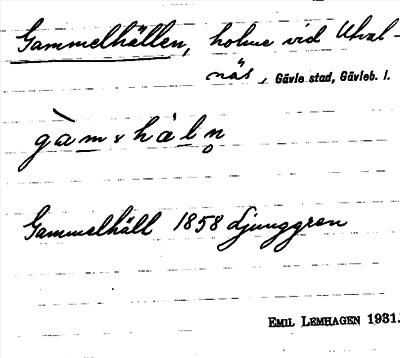 Gammelhällen, holme vid Utval-
näs, Gävle stad, Gävleb. l.
gàmₓhàlṇ
Gammelhäll 1858 Ljunggren
EMIL LEMHAGEN 1931.